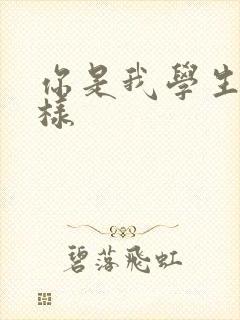 你是我學生
樣
碧落飛虹